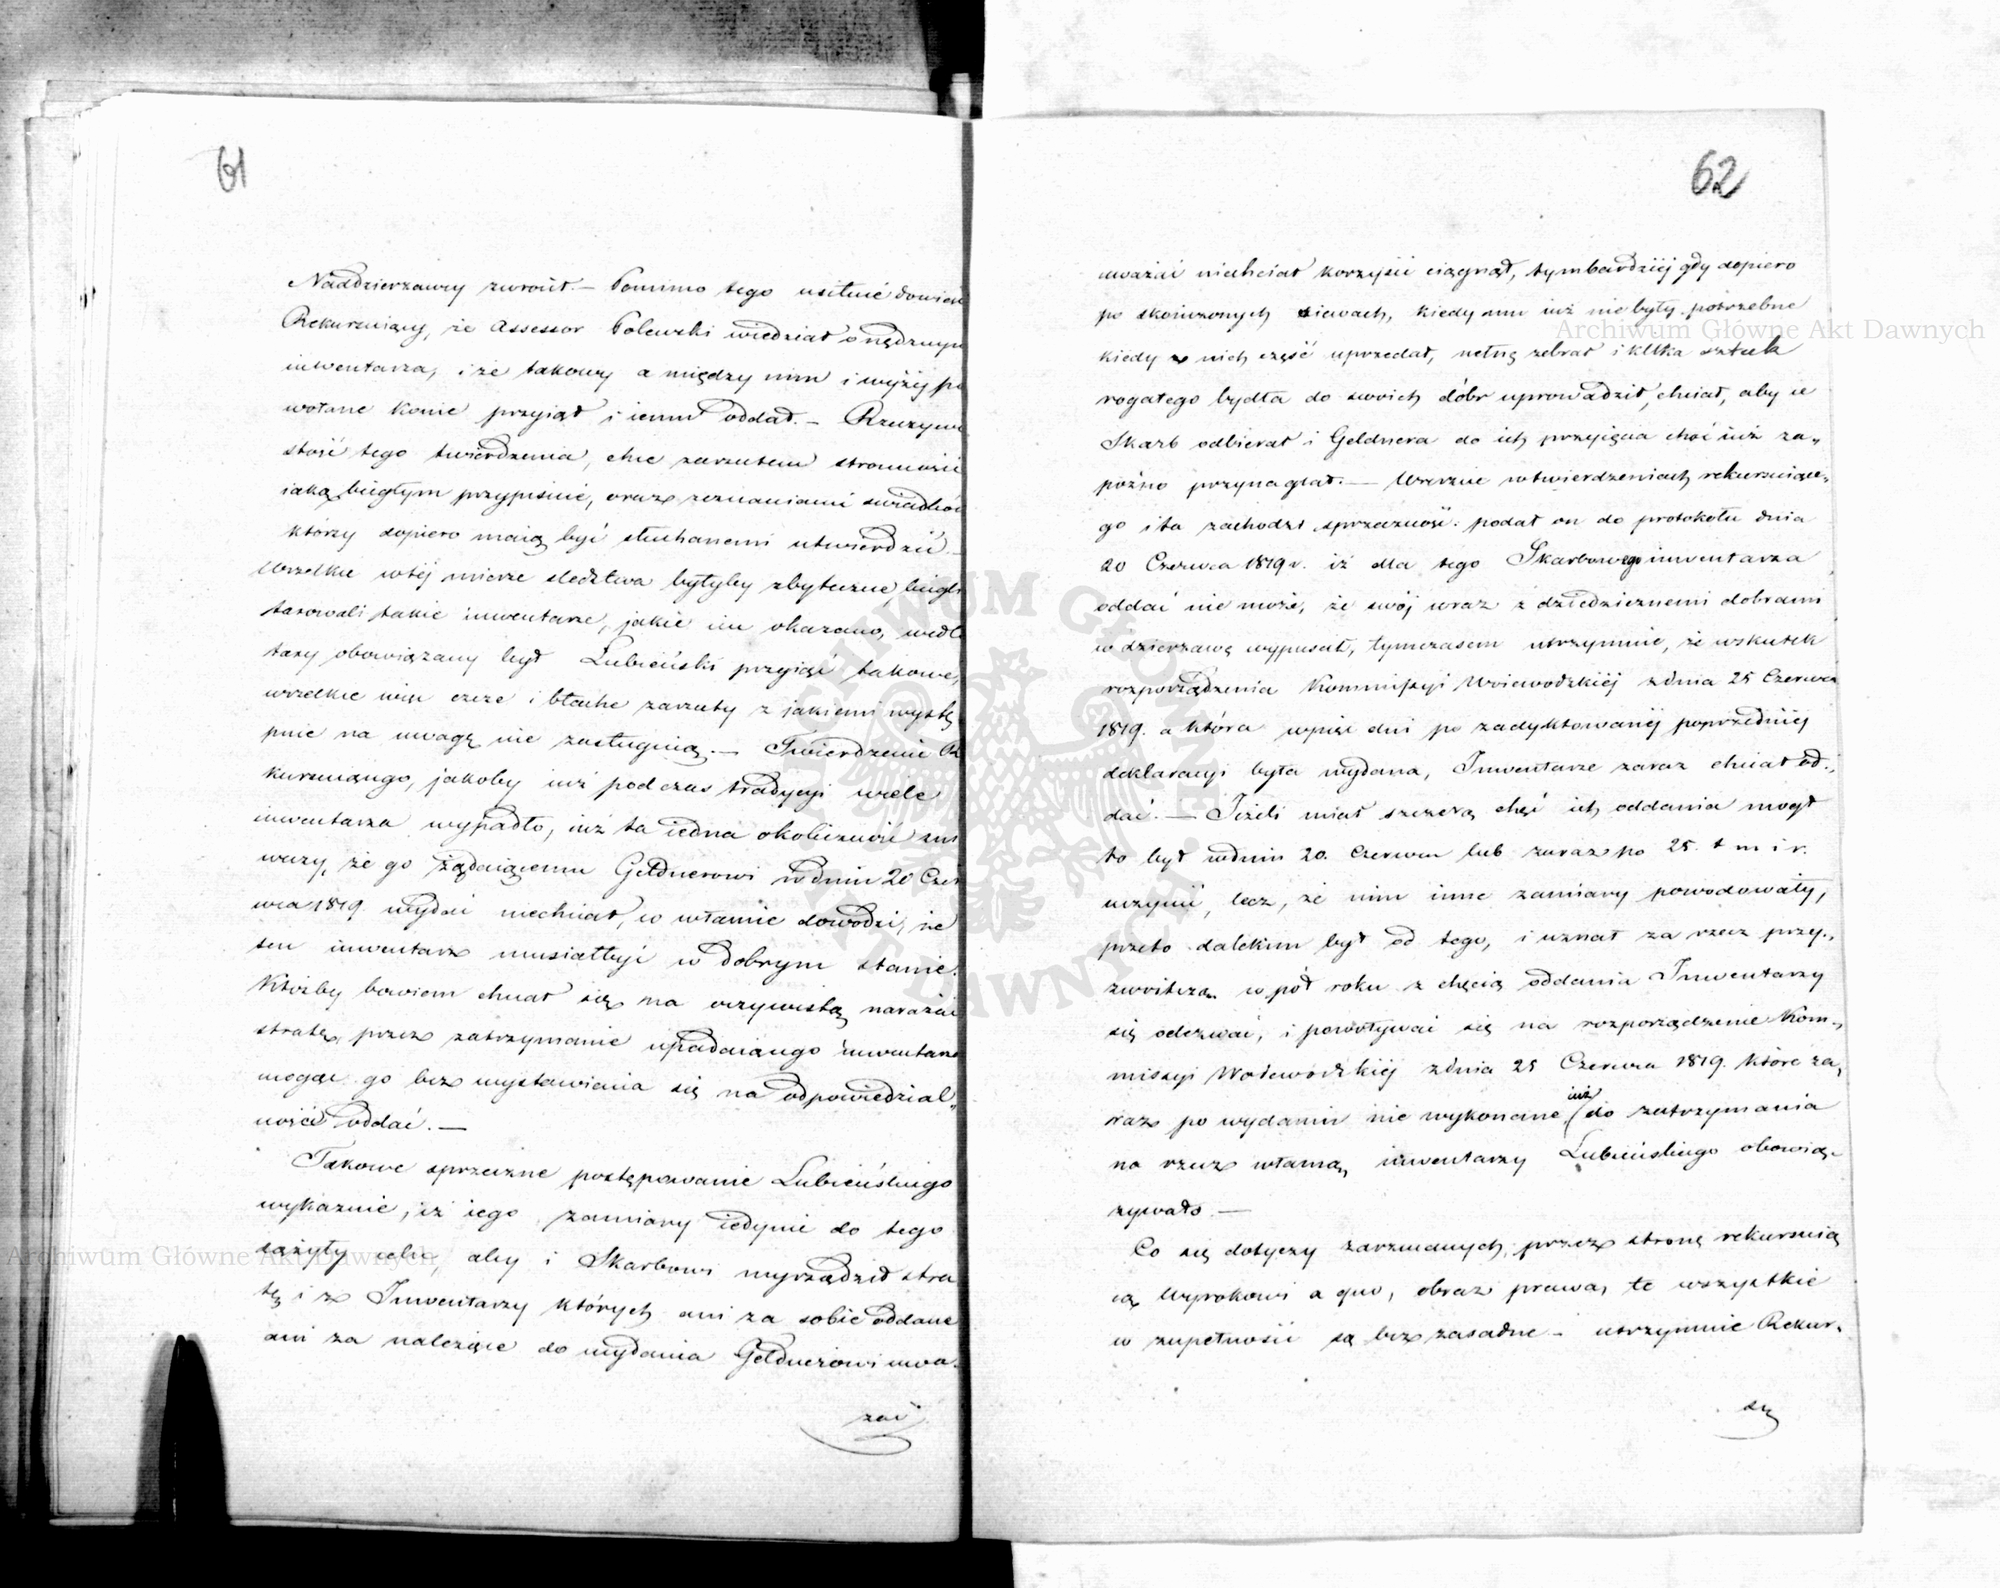 61
Naddzierżawcy zwrócił. — Pomimo tego usiłuie dowieść
Rekuruiący, że Assessor Polewski wiedział o nędznym
inwentarza, i że takowy a między nim i wyżej po
wołane konie przyiął i iemu oddał. — Rzeczywi
stość tego twierdzenia, chce zarzutem stronności
iaką biegłym przypisuie, oraz zeznaniami świadków
którzy dopiero maią być słuchanemi utwierdzić. —
Wszelkie w tej mierze śledztwa byłyby zbyteczne, biegli
taxowali takie inwentarze, jakie im okazano, wedle
taxy obowiązany był Łubieński przyiąć takowe,
wszelkie więc czcze i błahe zarzuty z jakiemi wystę
puie na uwagę nie zasługuią. — Twierdzenie Re
kuruiącego, jakoby iuż podczas tradycyi wiele
inwentarza wypadło, iuż ta iedna okoliczność zni
weczy, że go żądaiącemu Geldnerowi w dniu 20 Czer
wca 1819. wydać niechciał, co właśnie dowodzi, że
ten inwentarz musiał być w dobrym stanie.
Któżby bowiem chciał się na oczywistą narażać
stratę, przez zatrzymanie upadaiącego inwentarza
mogąc go bez wystawienia się na odpowiedzial„
ność oddać. —
Takowe sprzeczne postępowanie Łubieńskiego
wykazuie, iż iego zamiary iedynie do tego
dążyły celu, aby i Skarbowi wyrządził stra
tę i z Inwentarzy których ani za sobie oddane
ani za należące do wydania Geldnerowi uwa„
żać
62
uważać niechciał korzyści ciągnął, tymbardziej gdy dopiero
po skończonych siewach, kiedy mu iuż nie były potrzebne
kiedy z nich część uprzedał, wełnę zebrał i kilka sztuk
rogatego bydła do swoich dóbr uprowadził, chciał, aby ie
Skarb odbierał i Geldnera do ich przyięcia choć iuż za„
późno przynaglał. — Wreszcie w twierdzeniach rekuruiące„
go i ta zachodzi sprzeczność. podał on do protokołu dnia
20 Czerwca 1819 r. iż dla tego Skarbowego inwentarza
oddać nie może, że swój wraz z dziedzicznemi dobrami
w dzierżawę wypuścił, tymczasem utrzymuie, że wskutek
rozporządzenia Kommissyi Woiewódzkiej z dnia 25 Czerwca
1819. a która w pięć dni po zadyktowanej poprzedniej
deklaracyi była wydana, Inwentarze zaraz chciał od„
dać. — Jeżeli miał szczerą chęć ich oddania mógł
to był w dniu 20. Czerwca lub zaraz po 25. t m i r.
uczynić, lecz, że nim inne zamiary powodowały,
przeto dalekim był od tego, i uznał za rzecz przy„
zwoitszą w pół roku z chęcią oddania Inwentarzy
się odezwać, i powoływać się na rozporządzenie Kom„
missyi Woiewódzkiej z dnia 25 Czerwca 1819. które za„
raz po wydaniu nie wykonane, iuż do zatrzymania
na rzecz własną inwentarzy Łubieńskiego obowią„
zywało. —
Co się dotyczy zarzucanych przez stronę rekuruią
cą Wyrokowi a quo, obraz prawa, te wszystkie
w zupełności są bezzasadne — utrzymuie Rekur„